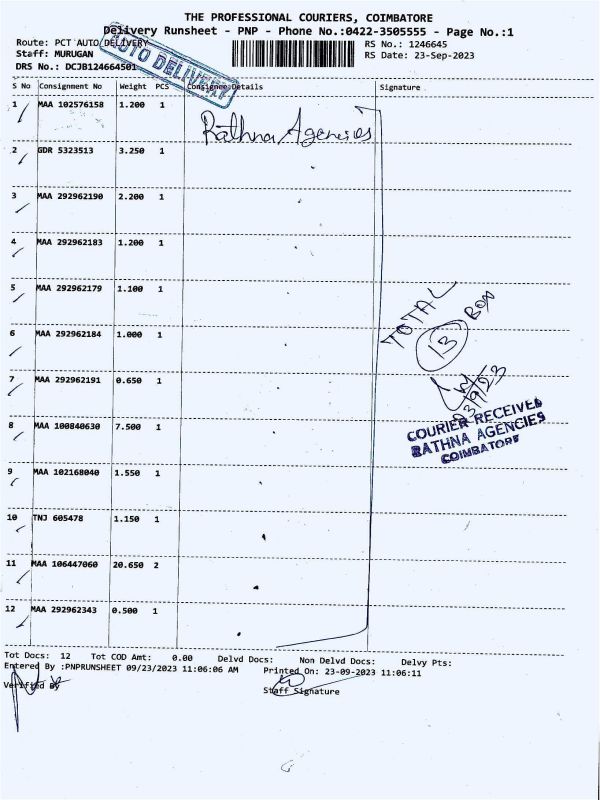 THE PROFESSIONAL COURIERS, COIMBATORE
Delivery Runsheet - PNP - Phone No.:0422-3505555 - Page No.:1
Route: PCT AUTO DELIVERY
RS No.: 1246645
Staff: MURUGAN
RS Date: 23-Sep-2023
DRS No.: DCJB124664501
AUTO DELIVERY
S No Consignment No Weight PCS Consignee Details Signature
1 MAA 102576158 1.200 1
Rathna Agencies
2 GDR 5323513 3.250 1
3 MAA 292962190 2.200 1
4 MAA 292962183 1.200 1
5 MAA 292962179 1.100 1
TOTAL
13 BOX
6 MAA 292962184 1.000 1
7 MAA 292962191 0.650 1
23/9/23
COURIER RECEIVED
RATHNA AGENCIES
COIMBATORE
8 MAA 100840630 7.500 1
9 MAA 102168040 1.550 1
10 TNJ 605478 1.150 1
11 MAA 106447060 20.650 2
12 MAA 292962343 0.500 1
Tot Docs: 12 Tot COD Amt: 0.00 Delvd Docs: Non Delvd Docs: Delvy Pts:
Entered By :PNPRUNSHEET 09/23/2023 11:06:06 AM Printed On: 23-09-2023 11:06:11
Verified By
Staff Signature